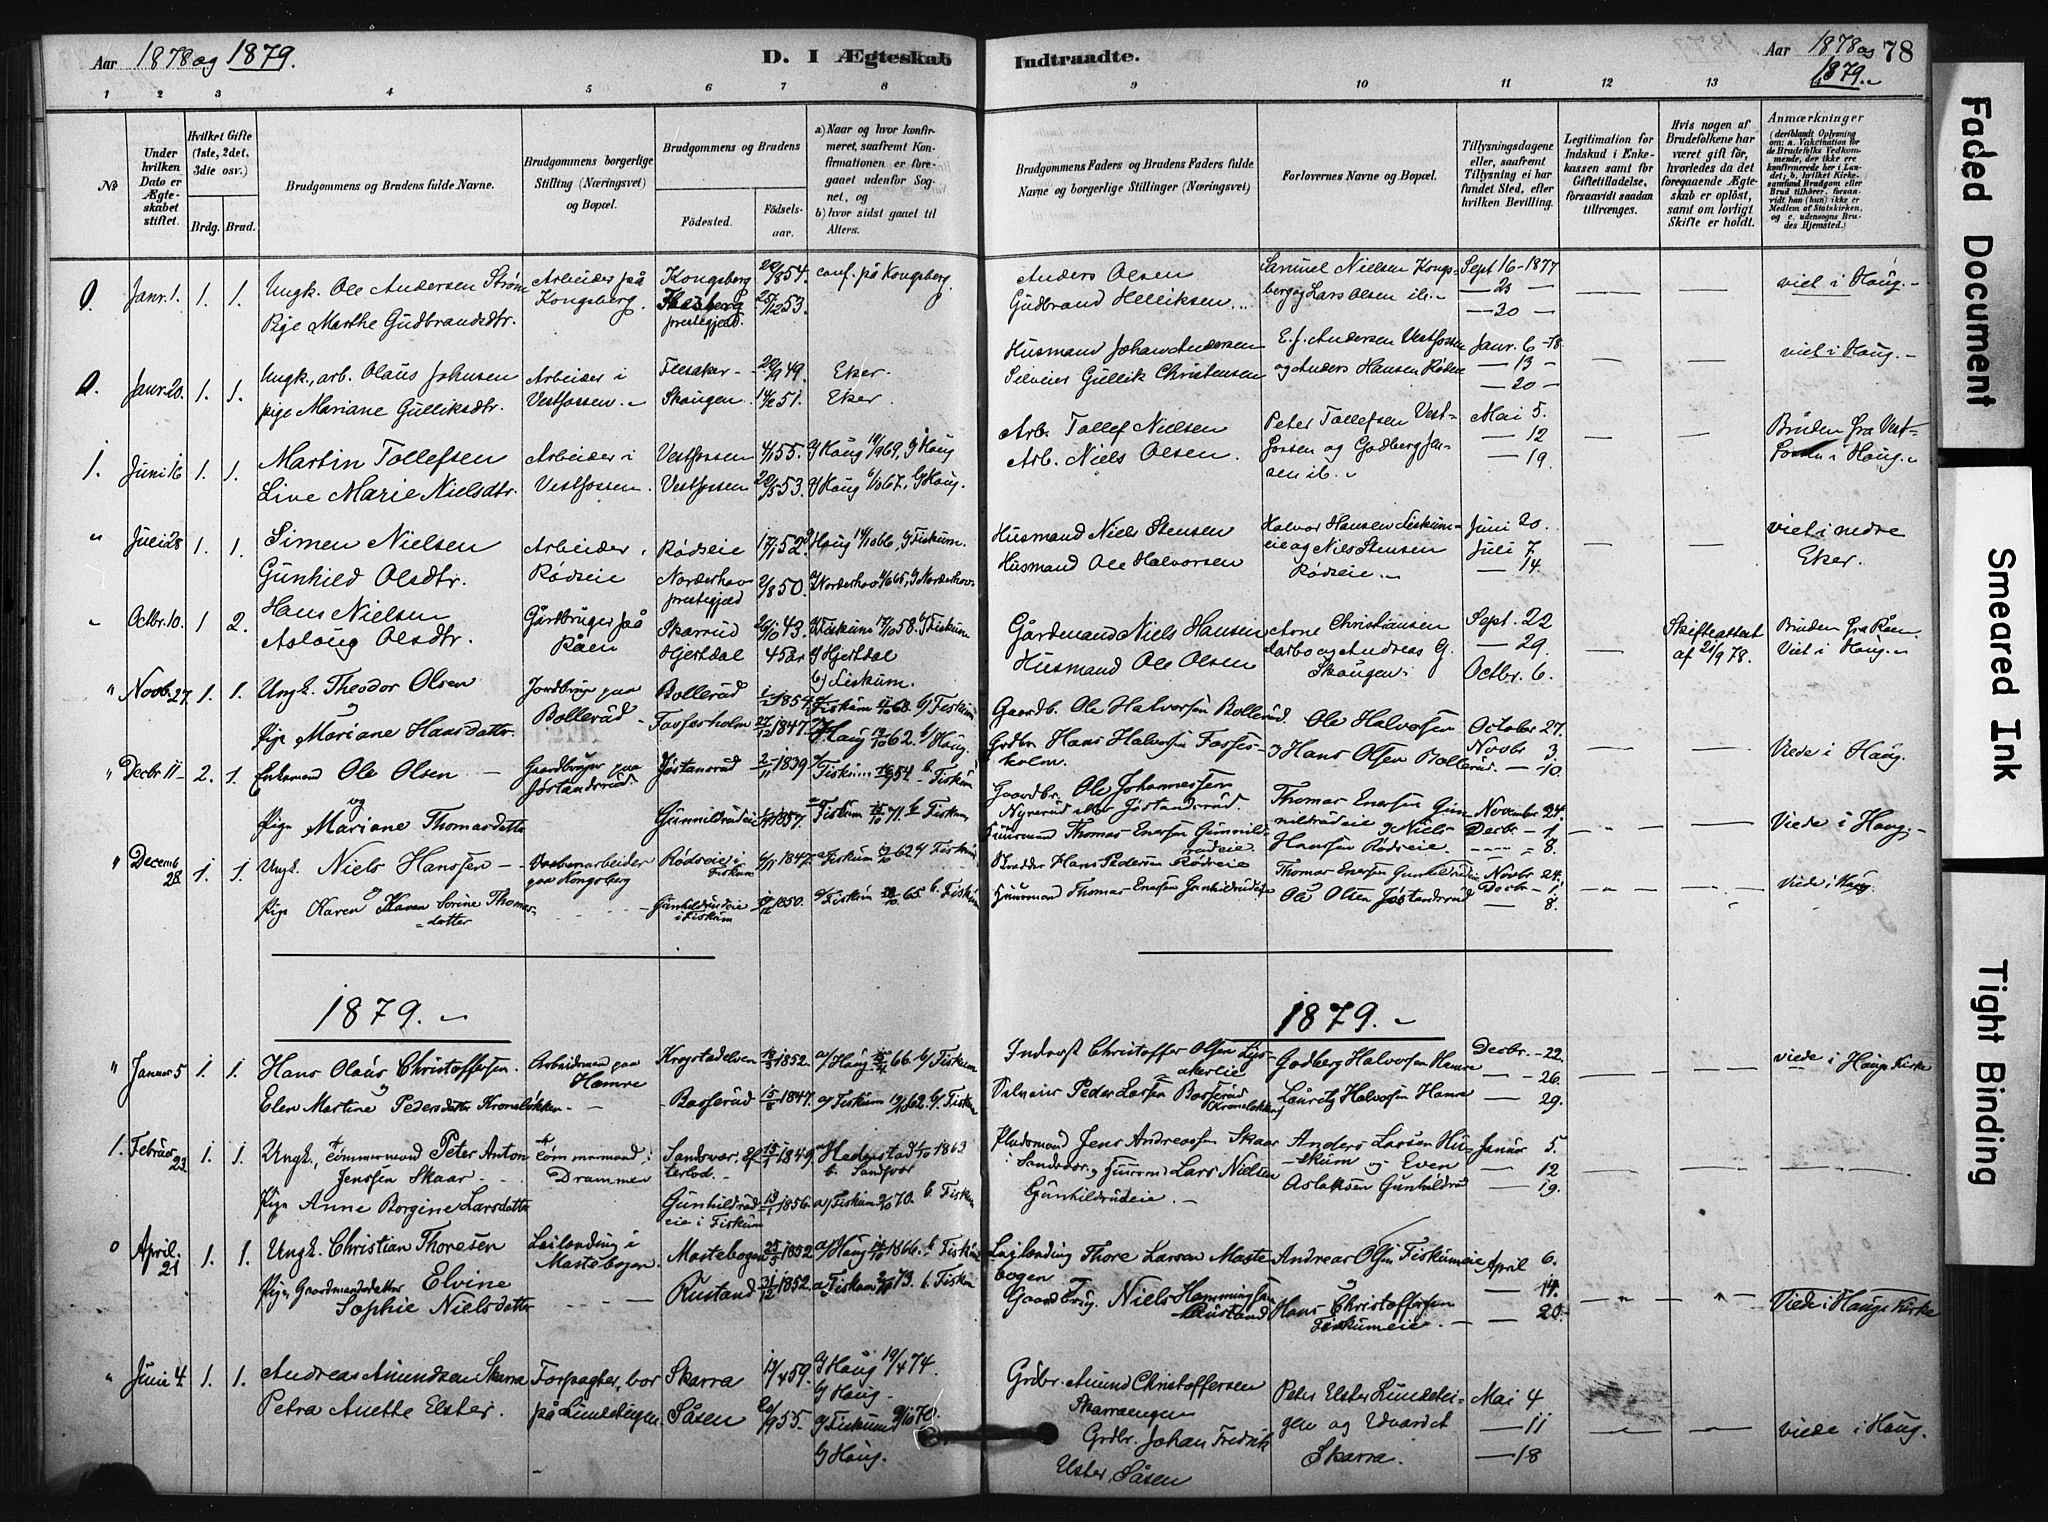 Aar 1878 og 1879.
D. I Ægteskab
Indtraadte.
Aar 1878 og 1879.
78
1 2 3 4 5 6 7 8 9 10 11 12 13
No
Under hvilken Dato er Ægteskabet stiftet.
Hvilket Gifte (1ste, 2det, 3die osv.)
Brdg. Brud.
Brudgommens og Brudens fulde Navne.
Brudgommens borgerlige Stilling (Næringsvei) og Bopæl.
Brudgommens og Brudens
Fødested.
Fødselsaar.
a) Naar og hvor konfirmeret, saafremt Konfirmationen er foregaaet udenfor Sognet, og
b) hvor sidst gaaet til Alters.
Brudgommens Faders og Brudens Faders fulde Navne og borgerlige Stillinger (Næringsvei)
Forlovernes Navne og Bopæl.
Tillysningsdagene eller, saafremt Tillysning ei har fundet Sted, efter hvilken Bevilling.
Legitimation for Indskud i Enkekassen samt for Giftetilladelse, forsaavidt saadan tiltrænges.
Hvis nogen af Brudefolkene har været gift før, hvorledes da det foregaaende Ægteskab er opløst, samt om lovligt Skifte er holdt.
Anmærkninger
(deriblandt Oplysning om: a. Vakcination for de Brudefolks Vedkommende, der ikke ere konfirmerede her i Landet; b. hvilket Kirkesamfund Brudgom eller Brud tilhører, forsaavidt han (hun) ikke er Medlem af Statskirken, og c. udensogns Brudes Hjemsted.)
0. Janr. 1. 1. 1. Ungk. Ole Andersen Strøm Arbeider på Kongsberg 1854. conf. på Kongsberg Anders Olsen Samuel Nielsen Kongs- Sept 16-1877 viet i Haug.
Pige Marthe Gudbrandsdtr. Kongsberg. prestegjæld. 25/12 53. Gudbrand Helliksen berg og Lars Olsen ib. — 23 —
— 20 —
0. Janr. 20. 1. 1. Ungk., arb. Olaus Johnsen Arbeider i 49. Eker. Husmand Johan Andersen E. f. Andersen Vestfossen Janr. 6 -78 viet i Haug.
pige Mariane Gulliksdtr. Vestfossen. Skougen 51. Eker Gullik Christensen og Anders Hansen — 13 —
— 20 —
1. Juni 16 1. 1. Martin Tollefsen Arbeider i Vestfossen 4/1 55. Haug 69, Haug Arb. Tollef Nielsen Peter Tollefsen Vest- Mai 5. Bruden fra Vest-
Live Marie Nielsdtr. Vestfossen. Vestfossen 20/5 53. Haug 67, Haug. Arb. Niels Olsen. fossen og Godberg Jen- — 12 fossen i Haug.
sen ib. — 19.
" Juli 28 1. 1. Simen Nielsen Arbeider, Rødseie 17/1 52. Haug 66, Fiskum. Husmand Niels Stensen Halvor Hansen Fiskum- Juni 20. viet i nedre
Gunhild Olsdtr. Rødseie Norderhov prestegjæld 2/8 50. Norderhov 65, Norderhov. Husmand Ole Halvorsen eie og Niels Stensen Juli 7 Eker.
Rødseie. — 14.
" Octbr. 10. 1 2. Hans Nielsen Gårdbruger på Skarrud 43. Fiskum 58. Fiskum Gårdmand Niels Hansen Arne Christiansen Sept. 22 Skifteattest Bruden fra Råen.
Aslaug Olsdtr. Råen Hjertdal 45 år Hjertdal Husmand Ole Olsen Darbo og Andreas G. — 29. af 21/9 78. Viet i Haug.
b) Fiskum. Skougen. Octbr. 6.
" Novb. 27. 1. 1. Ungk. Theodor Olsen Jordbruger paa Bollerud 1854. Fiskum 68. b/ Fiskum Gaardb. Ole Halvorsen Bollerud. Ole Halvorsen October 27.
Pige Mariane Hansdatter Bollerud Fosserholm 27/12 1847. Haug 62. b/ Haug. Grdbr. Hans Halvorsen Fosses- og Hans Olsen Bollerud. Novbr 3 Viede i Haug.
holm. — 10.
" Decbr 11 2. 1. Enkemand Ole Olsen Gaardbruger paa Jøstansrud 2/11 1839 Fiskum 54. b. Fiskum Gaardbr. Ole Johannessen Thomas Enersen Gun- November 24.
og Jøstandsrud. Nyrerud eller Jøstandsrud. nildrudeie og Niels Decbr — 1
Pige Mariane Thomasdatter Gunnildrudeie 1857. Fiskum 71. b. Fiskum Huusmand Thomas Enersen Gunnildrudeie Hanssen Rødseie. — 8. Viede i Haug.
" Decemb 28. 1. 1. Ungk. Niels Hanssen Vaabenarbeider Rødseie i Fiskum 1847. Fiskum 62 Fiskum Skrædder Hans Pedersen Rødseie Thomas Enersen Gunhildrudeie Novbr. 24.
og paa Kongsberg Decbr — 1 Viede i Haug.
Pige Karen Karen Sorine Thomas- Gunhildrudeie 1850. Fiskum 65. b. Fiskum Huusmand Thomas Enersen Gunhildrudeie Ole Olsen Jøstandsrud — 8.
datter i Fiskum
1879.
1879.
" Januar 5 1. 1. Hans Olaus Christoffersen. Arbeidsmand paa Krogstadelven 1852. a/ Haug 66. b/ Fiskum Inderst Christoffer Olsen Lys- Godberg Halvorsen Hemre Decbr. — 22. viede i Haugs Kirke
og Hæmre akerlie — 26.
Elen Martine Pedersdatter Kroneløkken Basserud 1847. a/ Fiskum 62. b/ Fiskum Peder Larsen Basserud (Kroneløkken) Lauritz Halvorsen — 29.
1. Februar 23. 1. 1. Ungk., Tømmermand Peter Anton Tømmermand i Sandsvær, Ef- 1849 a/ Hedenstad 1863 Pladsmand Jens Andreassen Skaar Anders Larsen Hu- Januar 5.
Jenssen Skaar Drammen terlod. b. Sandsvær i Sandsvær, Huusmd Lars Nielsen skum og Even — 12
Pige Anne Borgine Larsdatter Gunhildrud- 1856. a/ Fiskum 70. b. Fiskum Gunhildrudeie. Aslaksen Gunhildrud — 19.
eie i Fiskum
0 April. 21 1. 1. Ungk. Christian Thoresen Leilending i Mastebogen 25/5 1852 a/ Haug 1866. b Fiskum Leilending Thore Larsen Maste- Andreas Olsen Fiskumeie April 6.
Mastebogen bogen — 14.
Pige, Gaardmandsdatter Elvine Rustand 1852. a/ Fiskum 73. b. Fiskum Gaardbrug. Niels Hemmingsen Hans Christoffersen — 20. Viede i Haugs Kirke
Sophie Nielsdatter Rustand Fiskumeie.
" Juni 4. 1. 1. Andreas Amundsen Skarra Forpagter, bor Skarra 13/4 59. Haug 19/4 74. Grdbr. Amund Christoffersen Peter Elster Lundetei- Mai 4
Petra Anette Elster. på Lundeteigen Såsen 20/9 55. Haug. Skarraengen gen og Edvardt — 11 viede i Haug.
Fiskum 9/10 70. Grdbr. Johan Fredrik Skarra. — 18
Haug. Elster, Såsen
Faded Document
Smeared Ink
Tight Binding